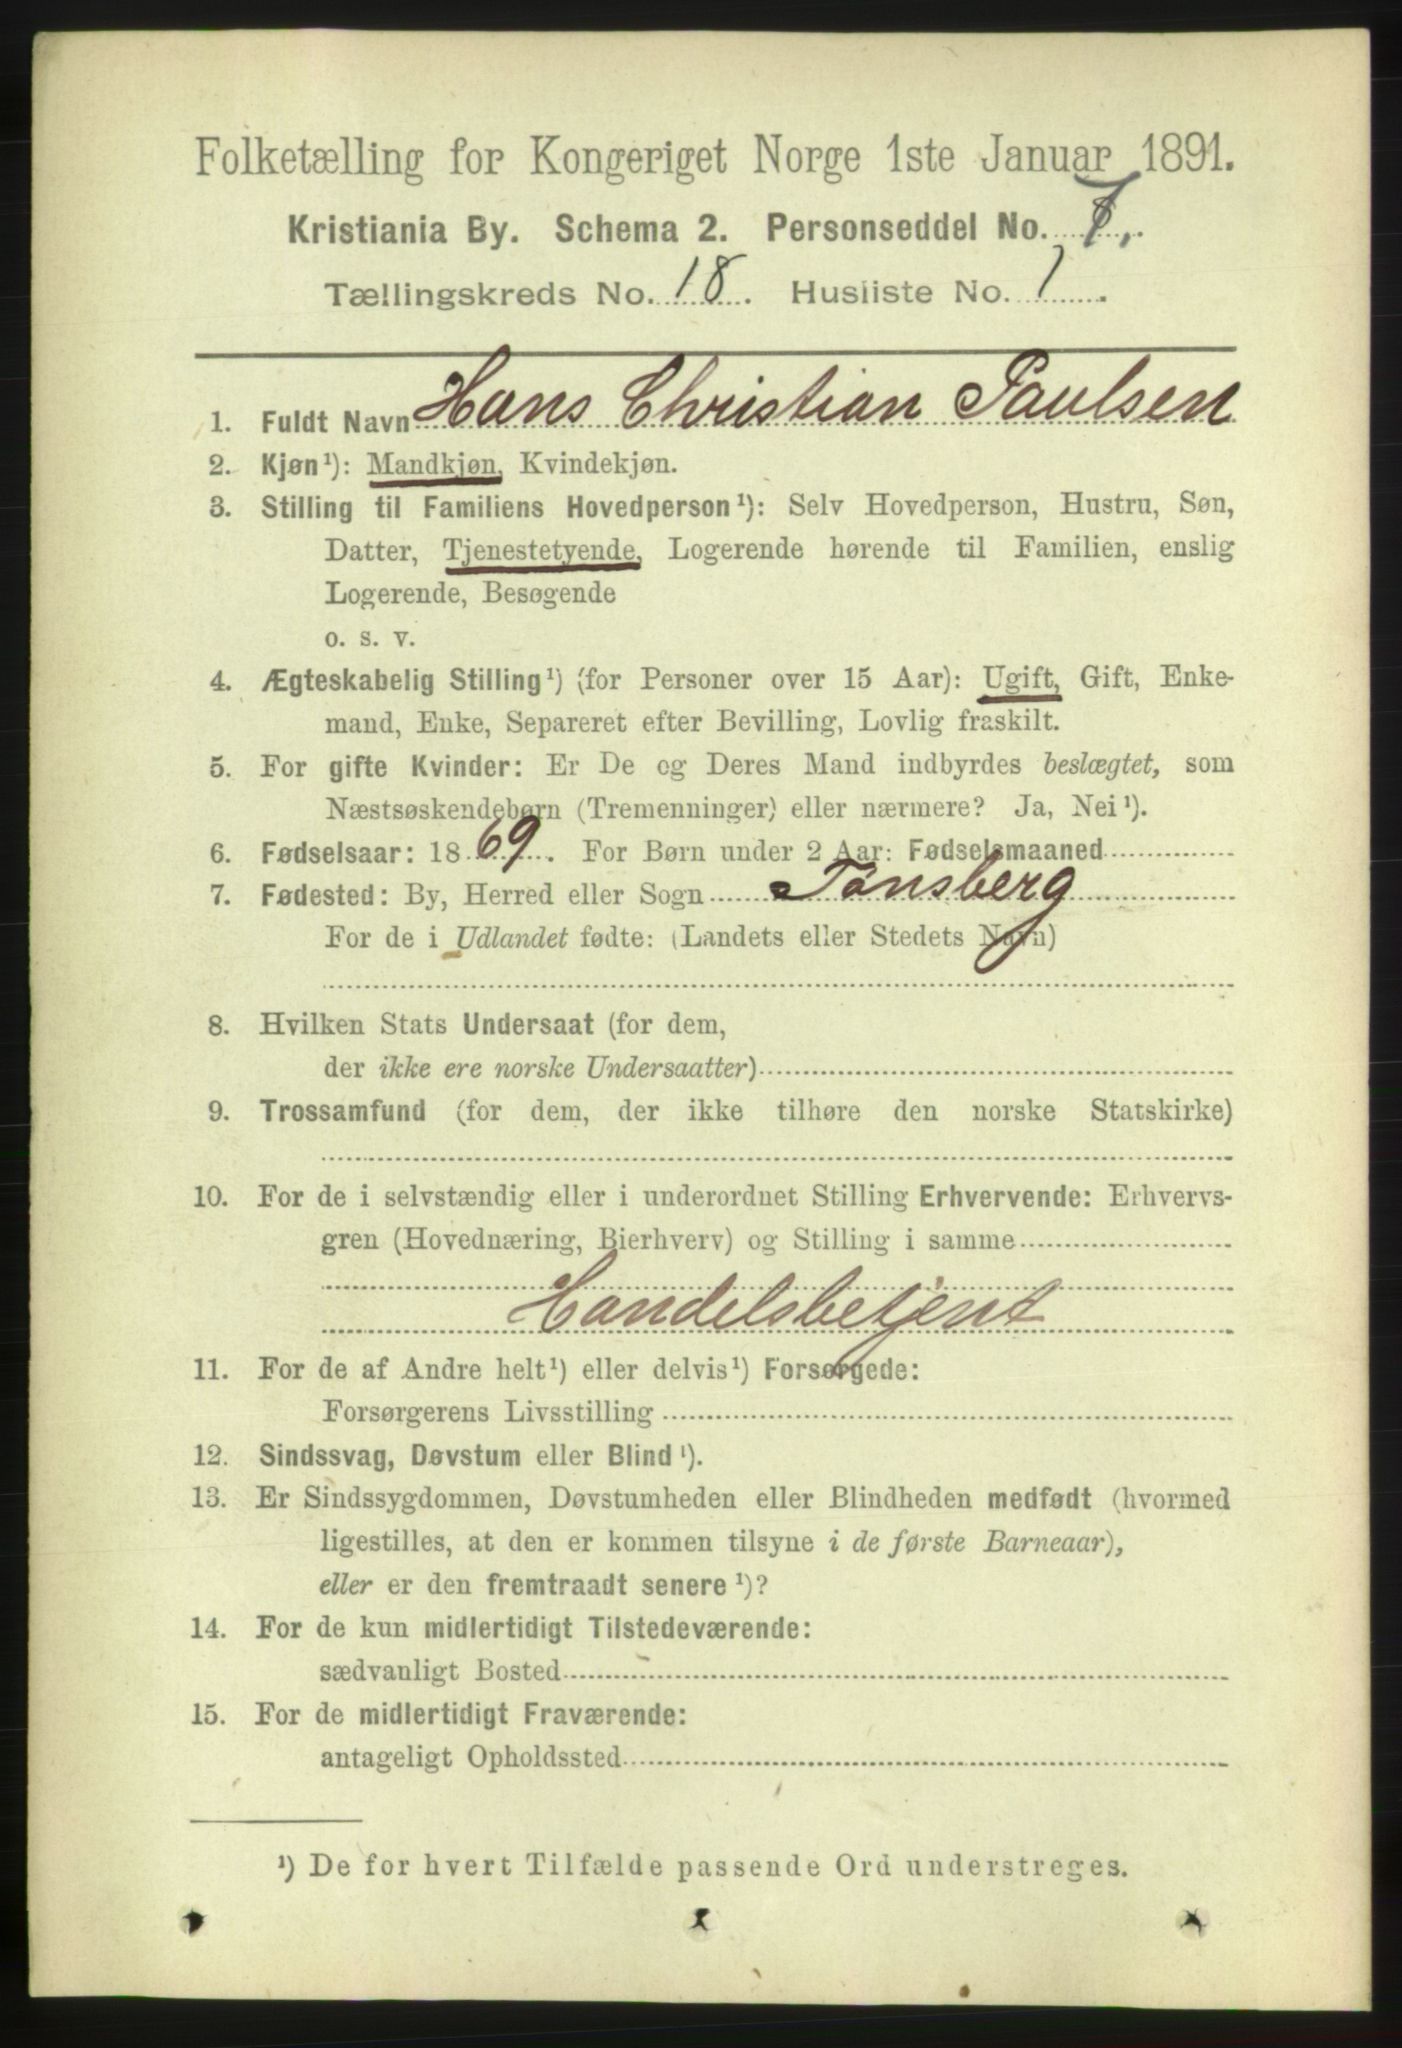 Folketælling for Kongeriget Norge 1ste Januar 1891.
Kristiania By. Schema 2. Personseddel No. 7.
Tællingskreds No. 18. Husliste No. 1.
1. Fuldt Navn Hans Christian Paulsen
2. Kjøn¹): Mandkjøn, Kvindekjøn.
3. Stilling til Familiens Hovedperson¹): Selv Hovedperson, Hustru, Søn,
Datter, Tjenestetyende, Logerende hørende til Familien, enslig
Logerende, Besøgende
o. s. v.
4. Ægteskabelig Stilling¹) (for Personer over 15 Aar): Ugift, Gift, Enke-
mand, Enke, Separeret efter Bevilling, Lovlig fraskilt.
5. For gifte Kvinder: Er De og Deres Mand indbyrdes beslægtet, som
Næstsøskendebørn (Tremenninger) eller nærmere? Ja, Nei¹).
6. Fødselsaar: 1869. For Børn under 2 Aar: Fødselsmaaned
7. Fødested: By, Herred eller Sogn Tønsberg
For de i Udlandet fødte: (Landets eller Stedets Navn)
8. Hvilken Stats Undersaat (for dem,
der ikke ere norske Undersaatter)
9. Trossamfund (for dem, der ikke tilhøre den norske Statskirke)
10. For de i selvstændig eller i underordnet Stilling Erhvervende: Erhvervs-
gren (Hovednæring, Bierhverv) og Stilling i samme
Handelsbetjent
11. For de af Andre helt¹) eller delvis¹) Forsørgede:
Forsørgerens Livsstilling
12. Sindssvag, Døvstum eller Blind¹).
13. Er Sindssygdommen, Døvstumheden eller Blindheden medfødt (hvormed
ligestilles, at den er kommen tilsyne i de første Barneaar),
eller er den fremtraadt senere¹)?
14. For de kun midlertidigt Tilstedeværende:
sædvanligt Bosted
15. For de midlertidigt Fraværende:
antageligt Opholdssted
¹) De for hvert Tilfælde passende Ord understreges.